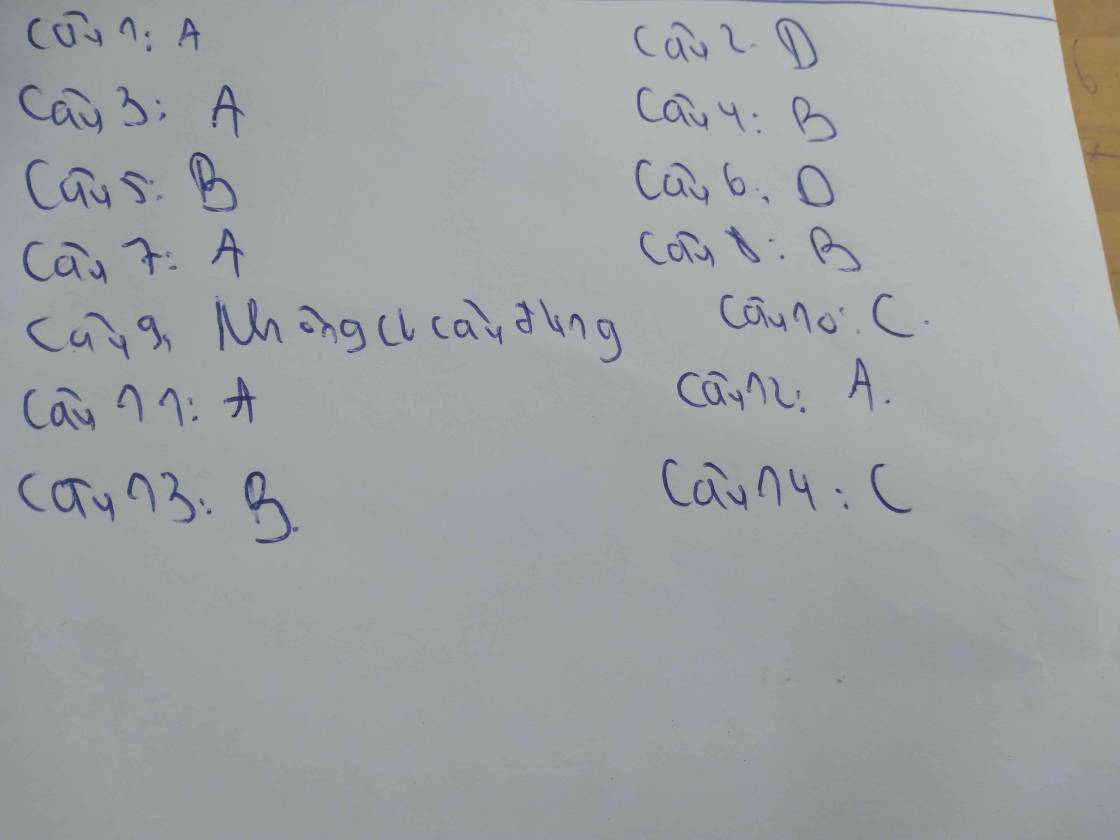 Câu 1: A Câu 2. D
Câu 3: A Câu 4: B
Câu 5: B Câu 6: D
Câu 7: A Câu 8: B
Câu 9: Không có câu đúng Câu 10: C.
Câu 11: A Câu 12: A.
Câu 13: B. Câu 14: C